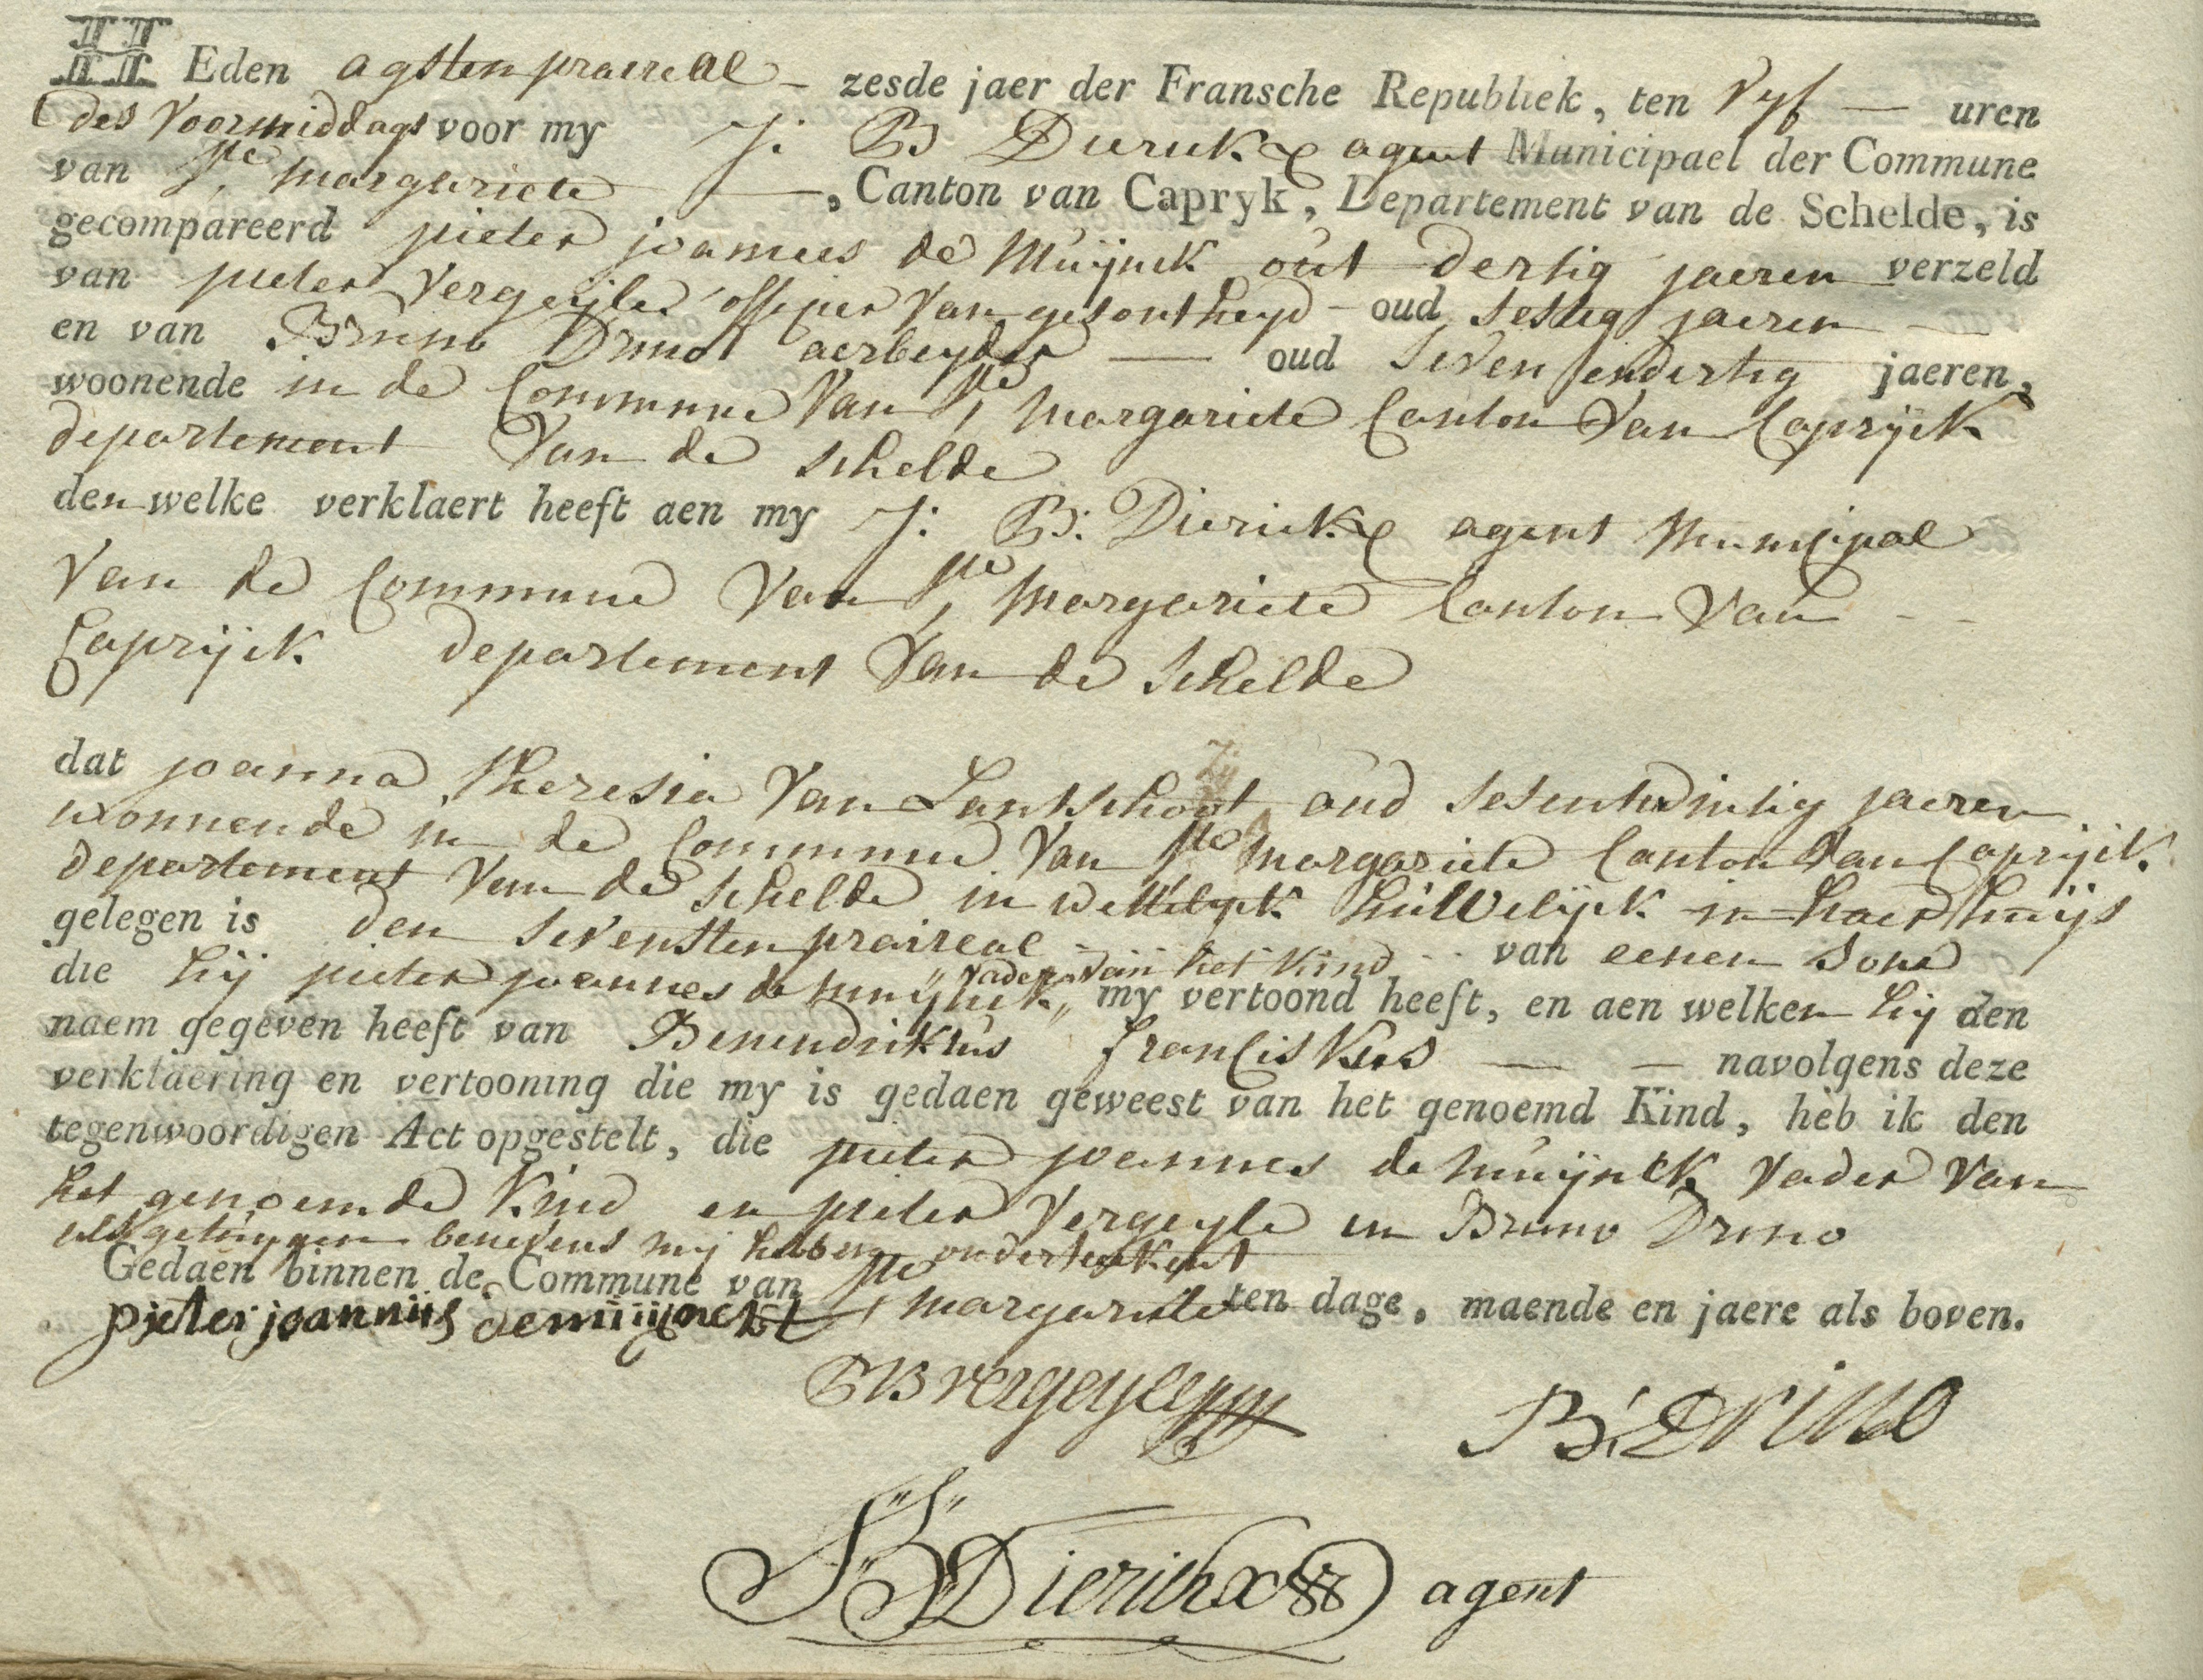 HEden agsten praireal – zesde jaer der Fransche Republiek, ten vyf — uren
des voormiddags voor my J: B Dierickx agent Municipael der Commune
van Ste, margariete —, Canton van Capryk, Departement van de Schelde, is
gecompareerd pieter joannes de Muijnck out dertig jaeren verzeld
van pieter Vergeijle officier van gesontheyd – oud sestig jaeren —
en van Bruno Drino aerbeyder — oud seven endertig jaeren,
woonende in de Commune van Ste, margariete Canton van Caprijck
departement van de schelde
den welke verklaert heeft aen my J: B: Dierickx agent municipal
van de Commune van Ste, margariete Canton van - -
Caprijck departement van de schelde
dat joanna theresia van Lantschoot oud sesentwintig jaeren
woonnende in de Commune van Ste margariete Canton van Caprijck
departement van de schelde in wettelyck huwelijck in haer huijs
gelegen is den sevensten praireal - van eenen sone
die hij pieter joannes de muijnck „ vader van het kind „ my vertoond heeft, en aen welken hij den
naem gegeven heeft van Benendicktus franciskus — — navolgens deze
verklaering en vertooning die my is gedaen geweest van het genoemd Kind, heb ik den
tegenwoordigen Act opgestelt, die pieter joannes de muijnck vader van
het genoemde kind en pieter Vergeyle en Bruno Drino
als getuygen benevens mij hebben onderteekent
Gedaen binnen de Commune van Ste, margariete ten dage, maende en jaere als boven.
pieter joanniis demuijnck
PB vergeyle
B: Drino
JB Dierickx agent